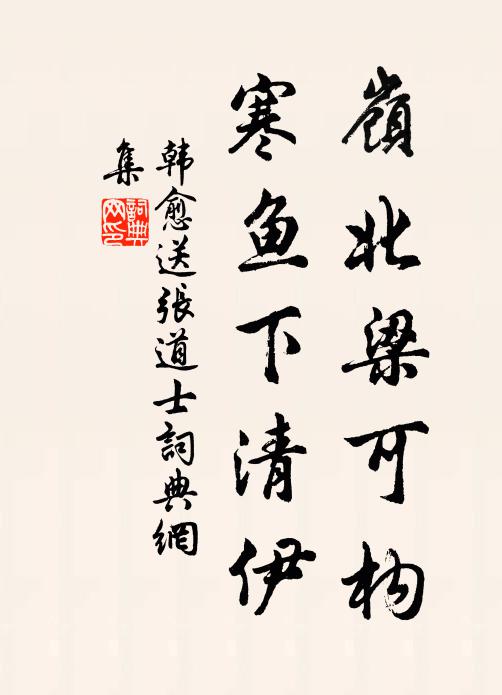 嶺北梁可构
寒鱼下清伊
韩愈送張道士詞典網
集
詞典
网印